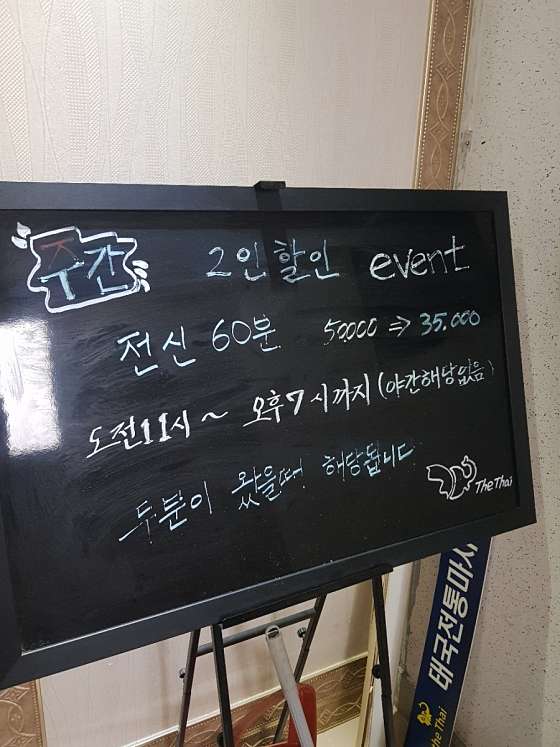 주간 2인 할인 event
전신 60분 50000 ⇒ 35.000
도전11시 ~ 오후7시까지 (야간해당없음)
두분이 왔을때 해당됩니다
The Thai
태국전통마사
The Thai